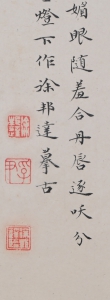 媚眼隨羞合丹唇逐咲分
燈下作 徐邦達摹古